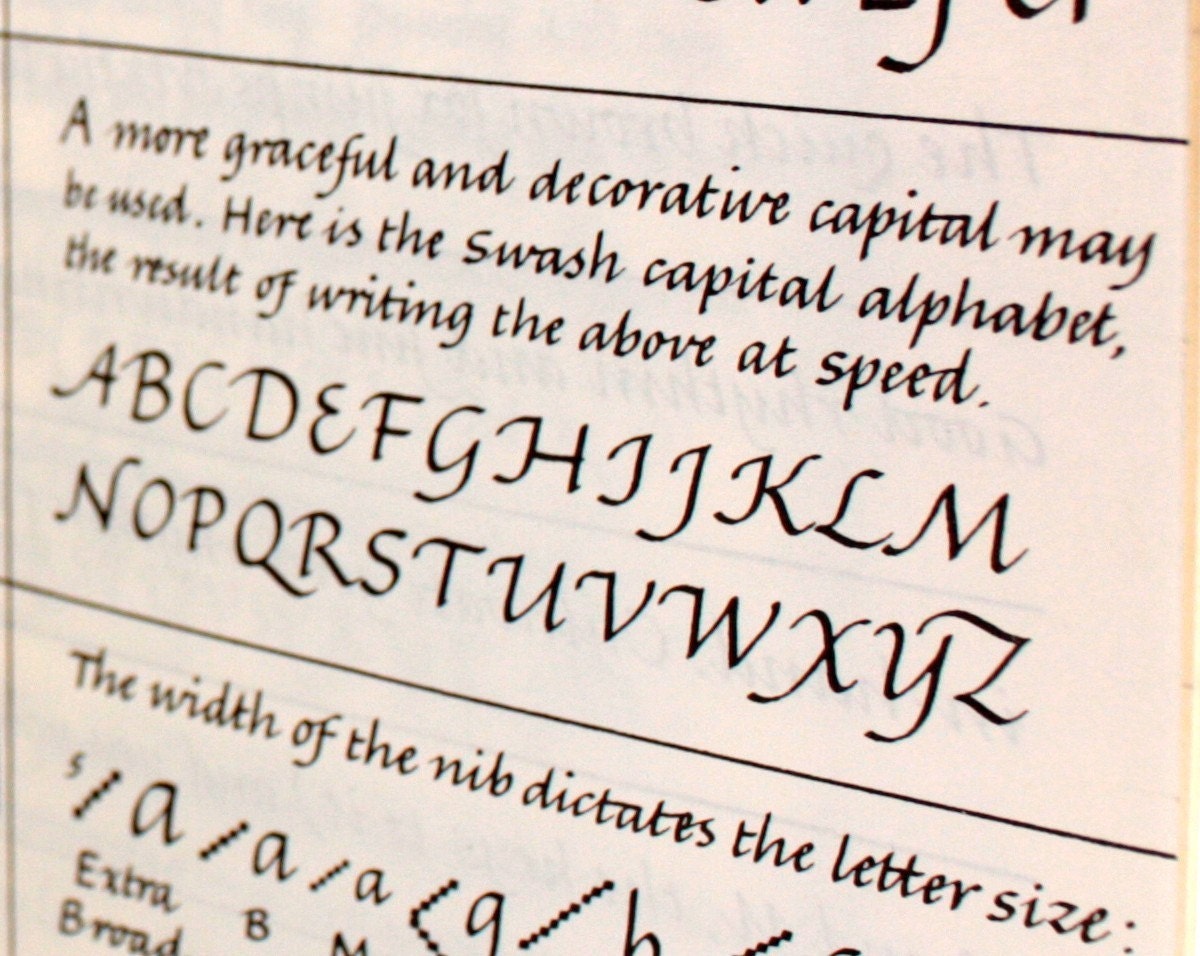 A more graceful and decorative capital may
be used. Here is the Swash capital alphabet,
the result of writing the above at speed.
ABCDEFGHIJKLM
NOPQRSTUVWXYZ
The width of the nib dictates the letter size:
5 a a a g h
Extra B M
Broad